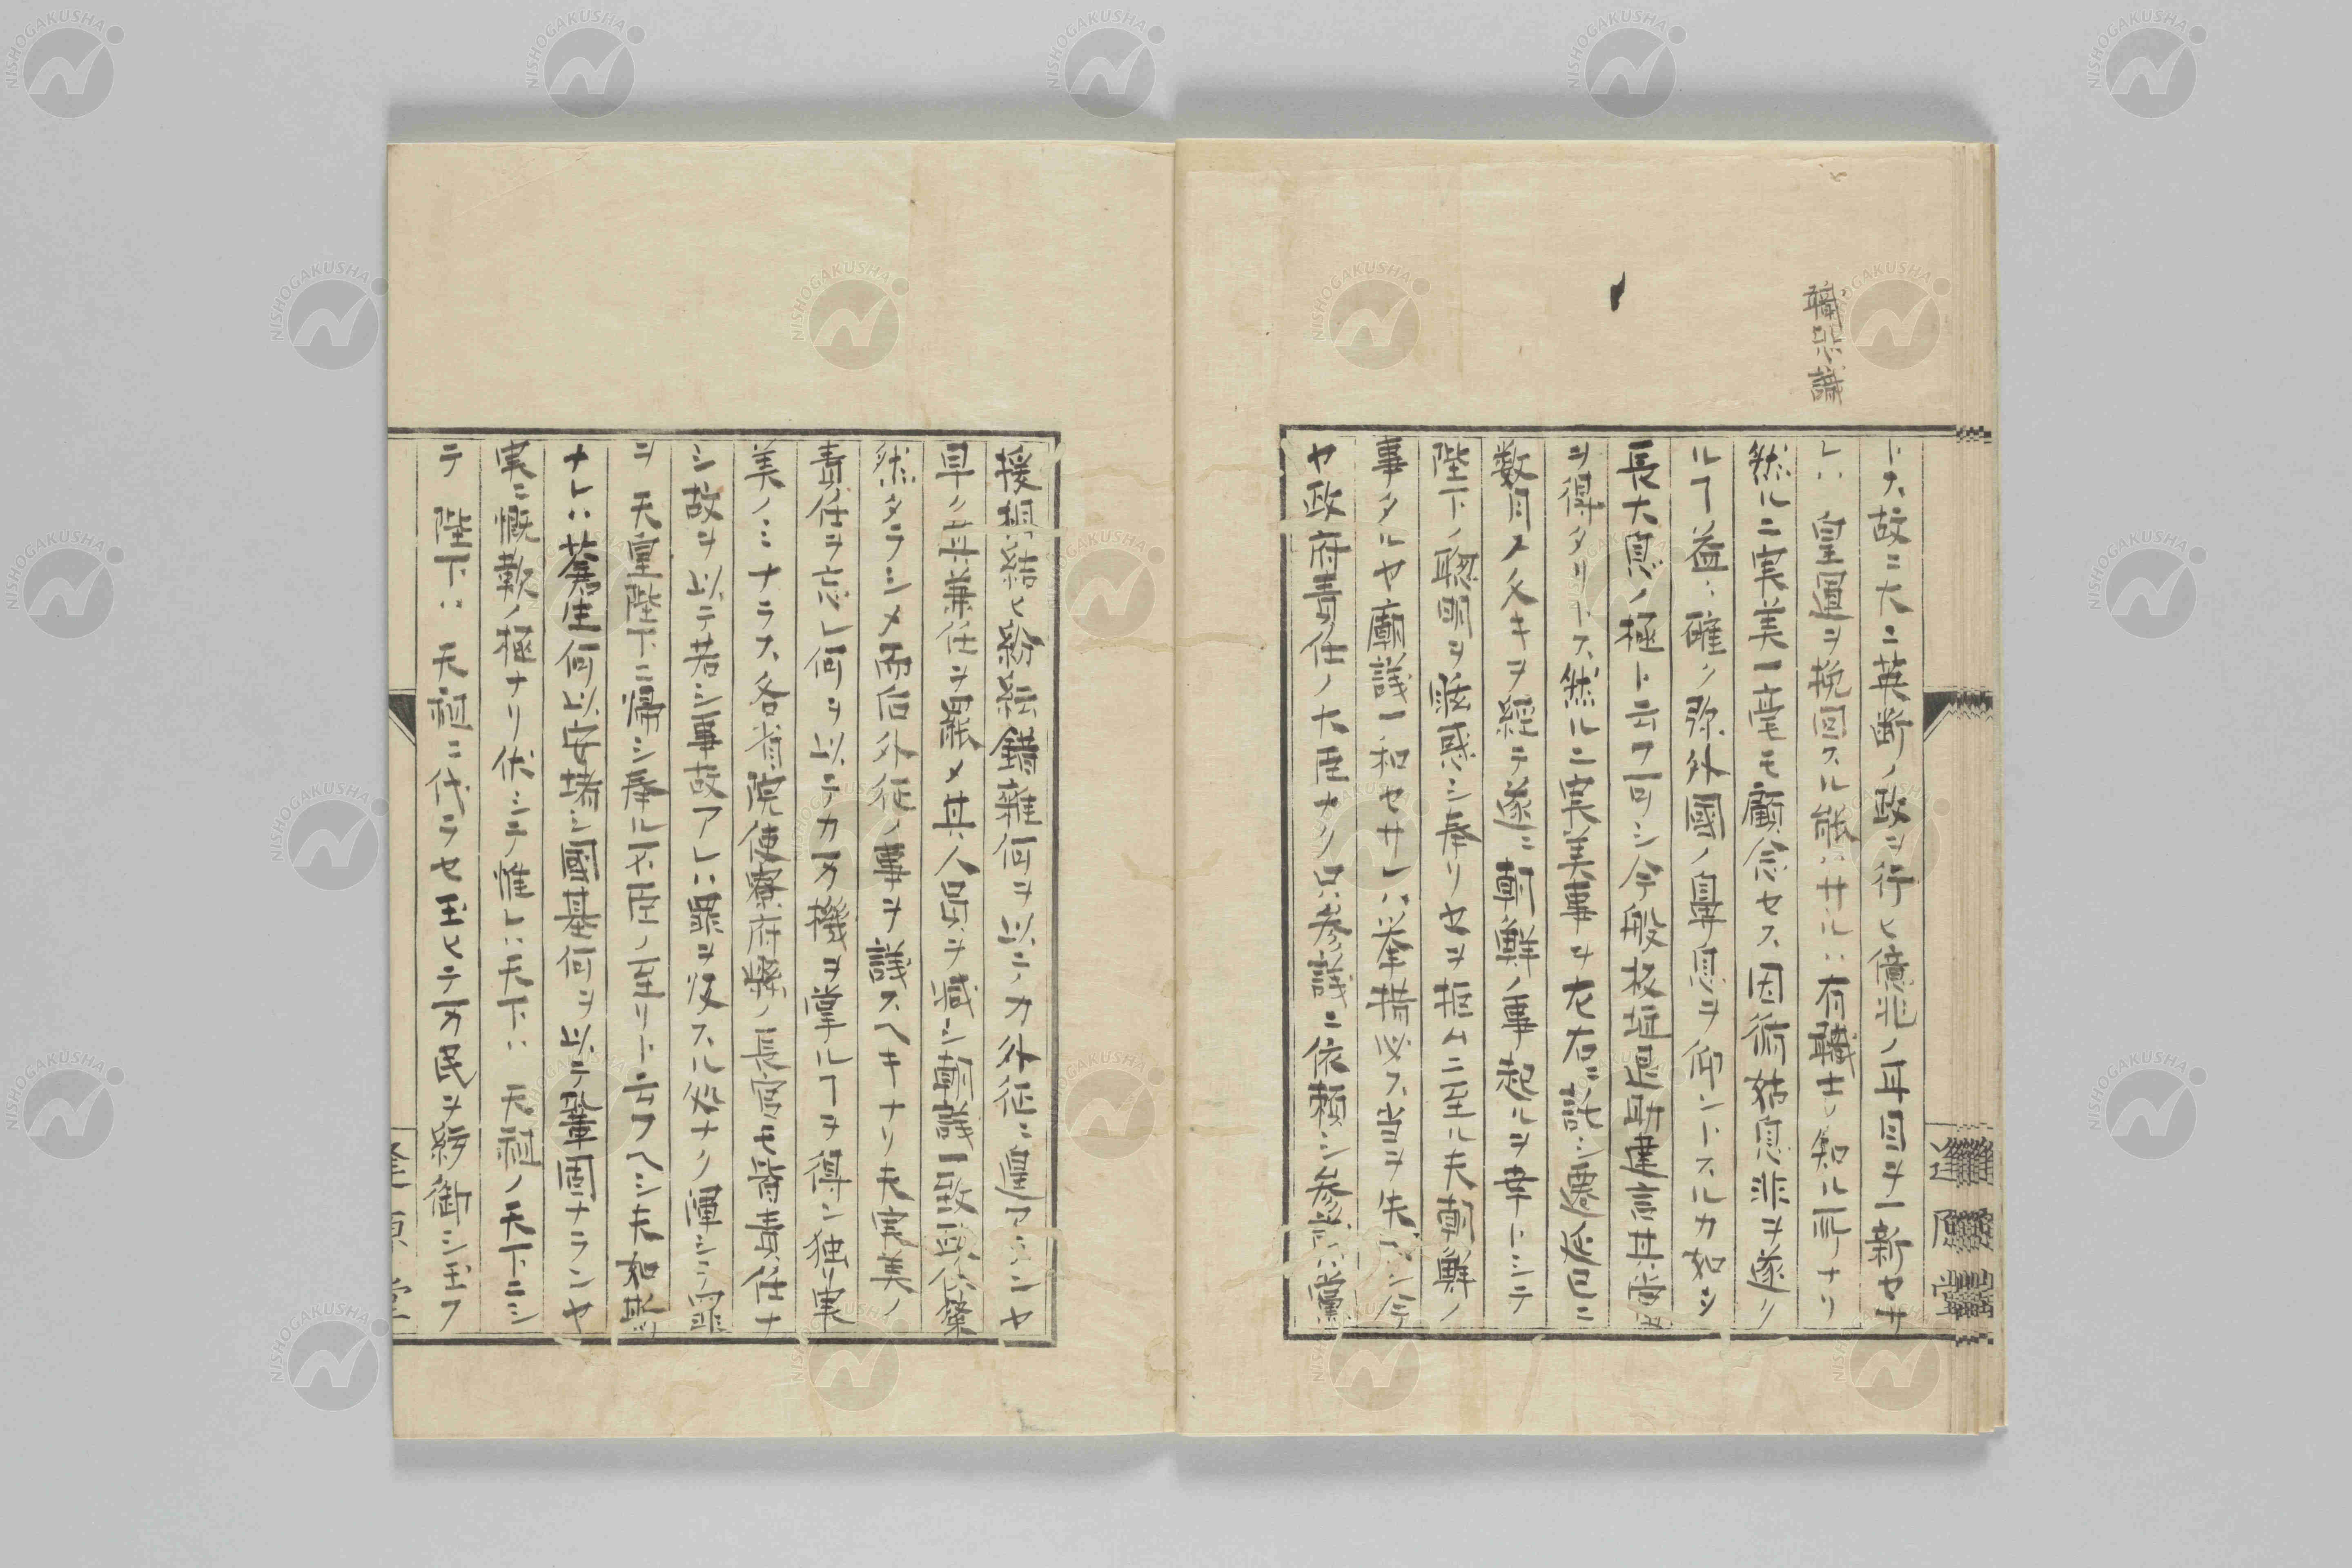 職恐識
トス故ニ大ニ英断ノ政ヲ行ヒ億兆ノ耳目ヲ一新セサ
レハ 皇運ヲ挽回スル能ハサルハ有職士ノ知ル所ナリ
然ルニ実美一毫モ顧念セス因循姑息非ヲ遂ク
ルヿ益々確ク弥外國ノ鼻息ヲ仰ントスルカ如シ
長大息ノ極ト云フ可シ今般板垣退助建言其當
ヲ得タリトス然ルニ実美事ヲ左右ニ託シ遷延已ニ
数月又々キヲ経テ遂ニ朝鮮ノ事起ルヲ幸トシテ
陛下ノ聡明ヲ眩惑シ奉リセヲ拒ムニ至ル夫朝鮮ノ
事タルヤ廟議一和セサレハ挙措必ス当ヲ失ハン今
ヤ政府責任ノ大臣ナク只参議ニ依頼シ参議ハ黨
援相結ヒ紛紜錯雜何ヲ以テカ外征ニ遑アランヤ
早ク其兼任ヲ罷メ其人員ヲ減シ朝議一致政体粲
然タラシメ而后外征ノ事ヲ議スヘキナリ夫実美ノ
責任ヲ忘レ何ヲ以テカ万機ヲ掌ルヿヲ得ン独リ実
美ノミナラス各省院使寮府縣ノ長官モ皆責任ナ
シ故ヲ以テ若シ事故アレハ罪ヲ帰スル処ナク渾シテ罪
ヲ 天皇陛下ニ帰シ奉ル不臣ノ至リト云フヘシ夫如斯
ナレハ蒼生何以安堵シ國基何ヲ以テ鞏固ナランヤ
実ニ慨歎ノ極ナリ伏シテ惟レハ天下ハ 天祖ノ天下ニシ
テ 陛下ハ 天祖ニ代ラセ玉ヒテ万民ヲ統御シ玉フ
NISHOGAKUSHA